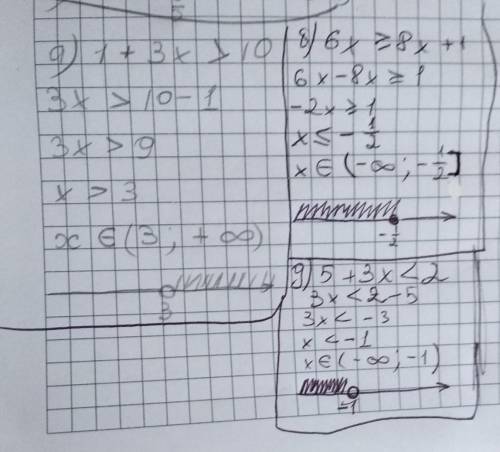 g) 1 + 3x > 10
3x > 10 - 1
3x > 9
x > 3
x ∈ (3; +∞)
3
8) 6x ≥ 8x + 1
6x - 8x ≥ 1
-2x ≥ 1
x ≤ -1/2
x ∈ (-∞; -1/2]
-1/2
g) 5 + 3x < 2
3x < 2 - 5
3x < -3
x < -1
x ∈ (-∞; -1)
-1